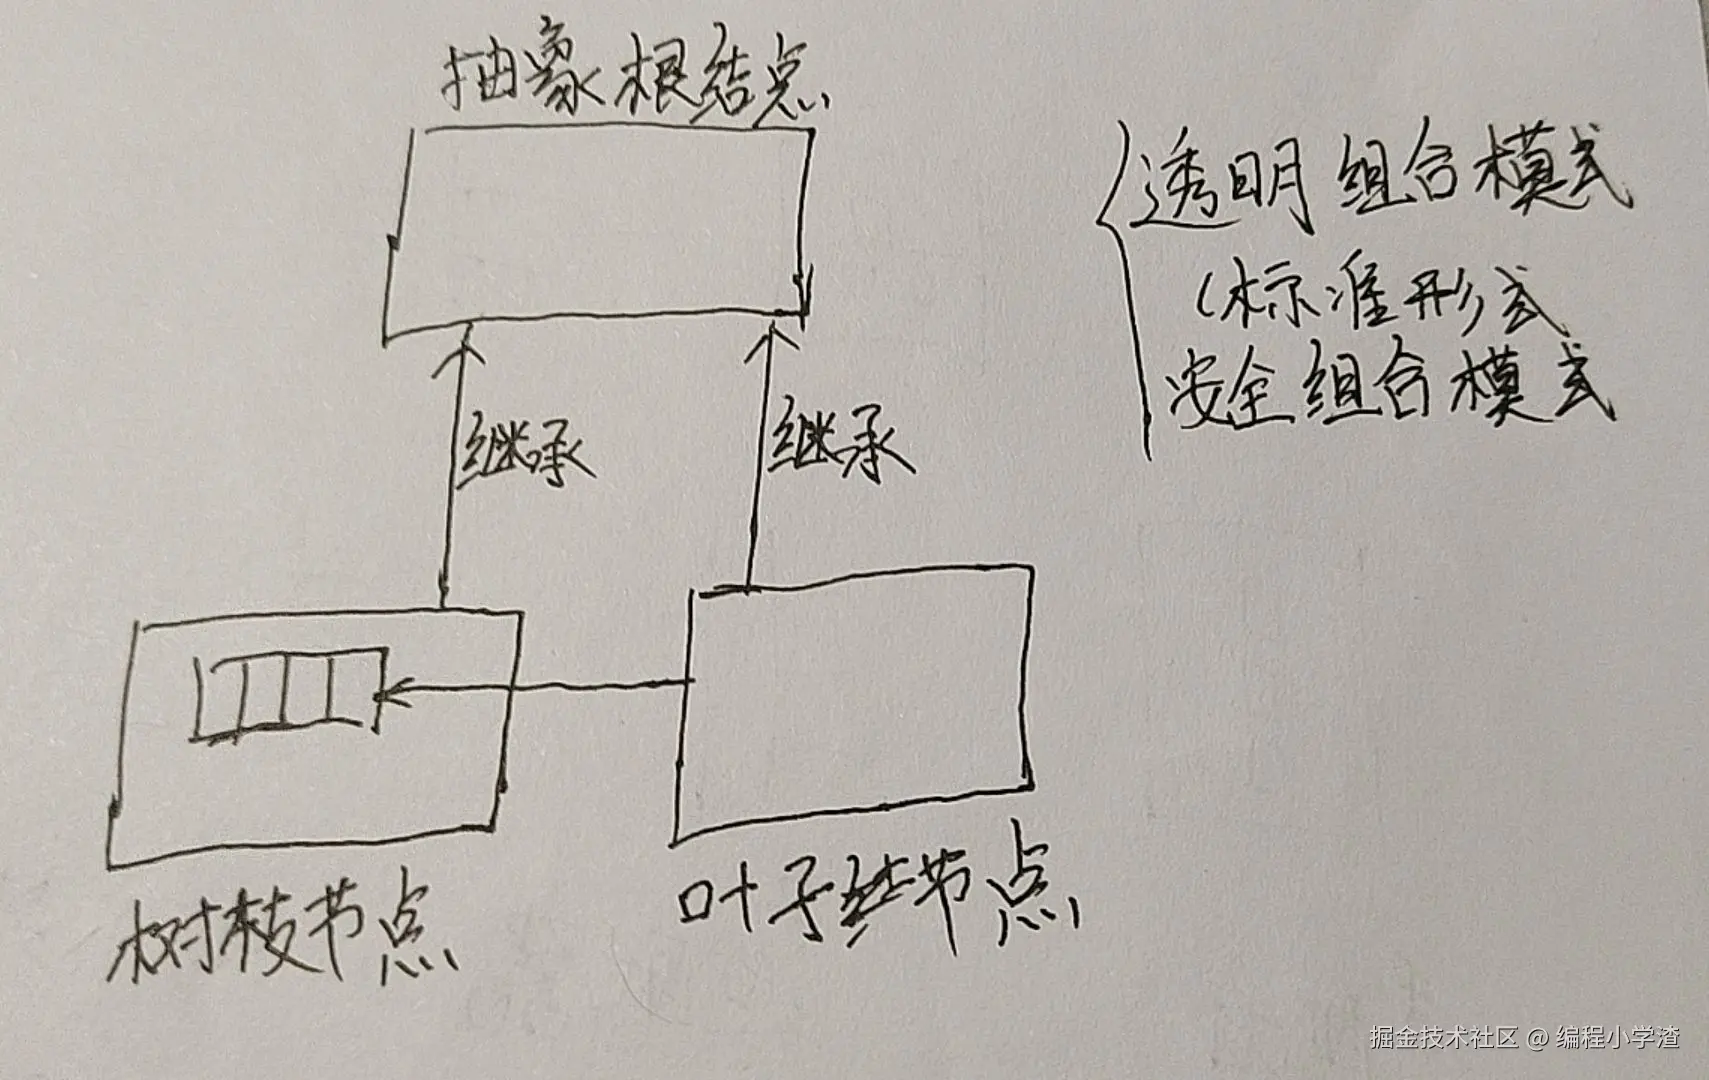 抽象根结点
透明组合模式
(标准形式
安全组合模式
继承
继承
树枝节点
叶子节点
掘金技术社区 @ 编程小学渣